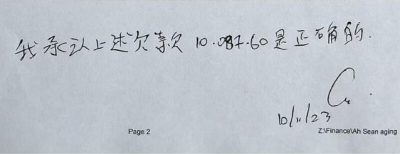 我承认上述欠款 10.087.60 是正确的.
10/11/23
Page 2
Z:\Finance\Ah Sean aging